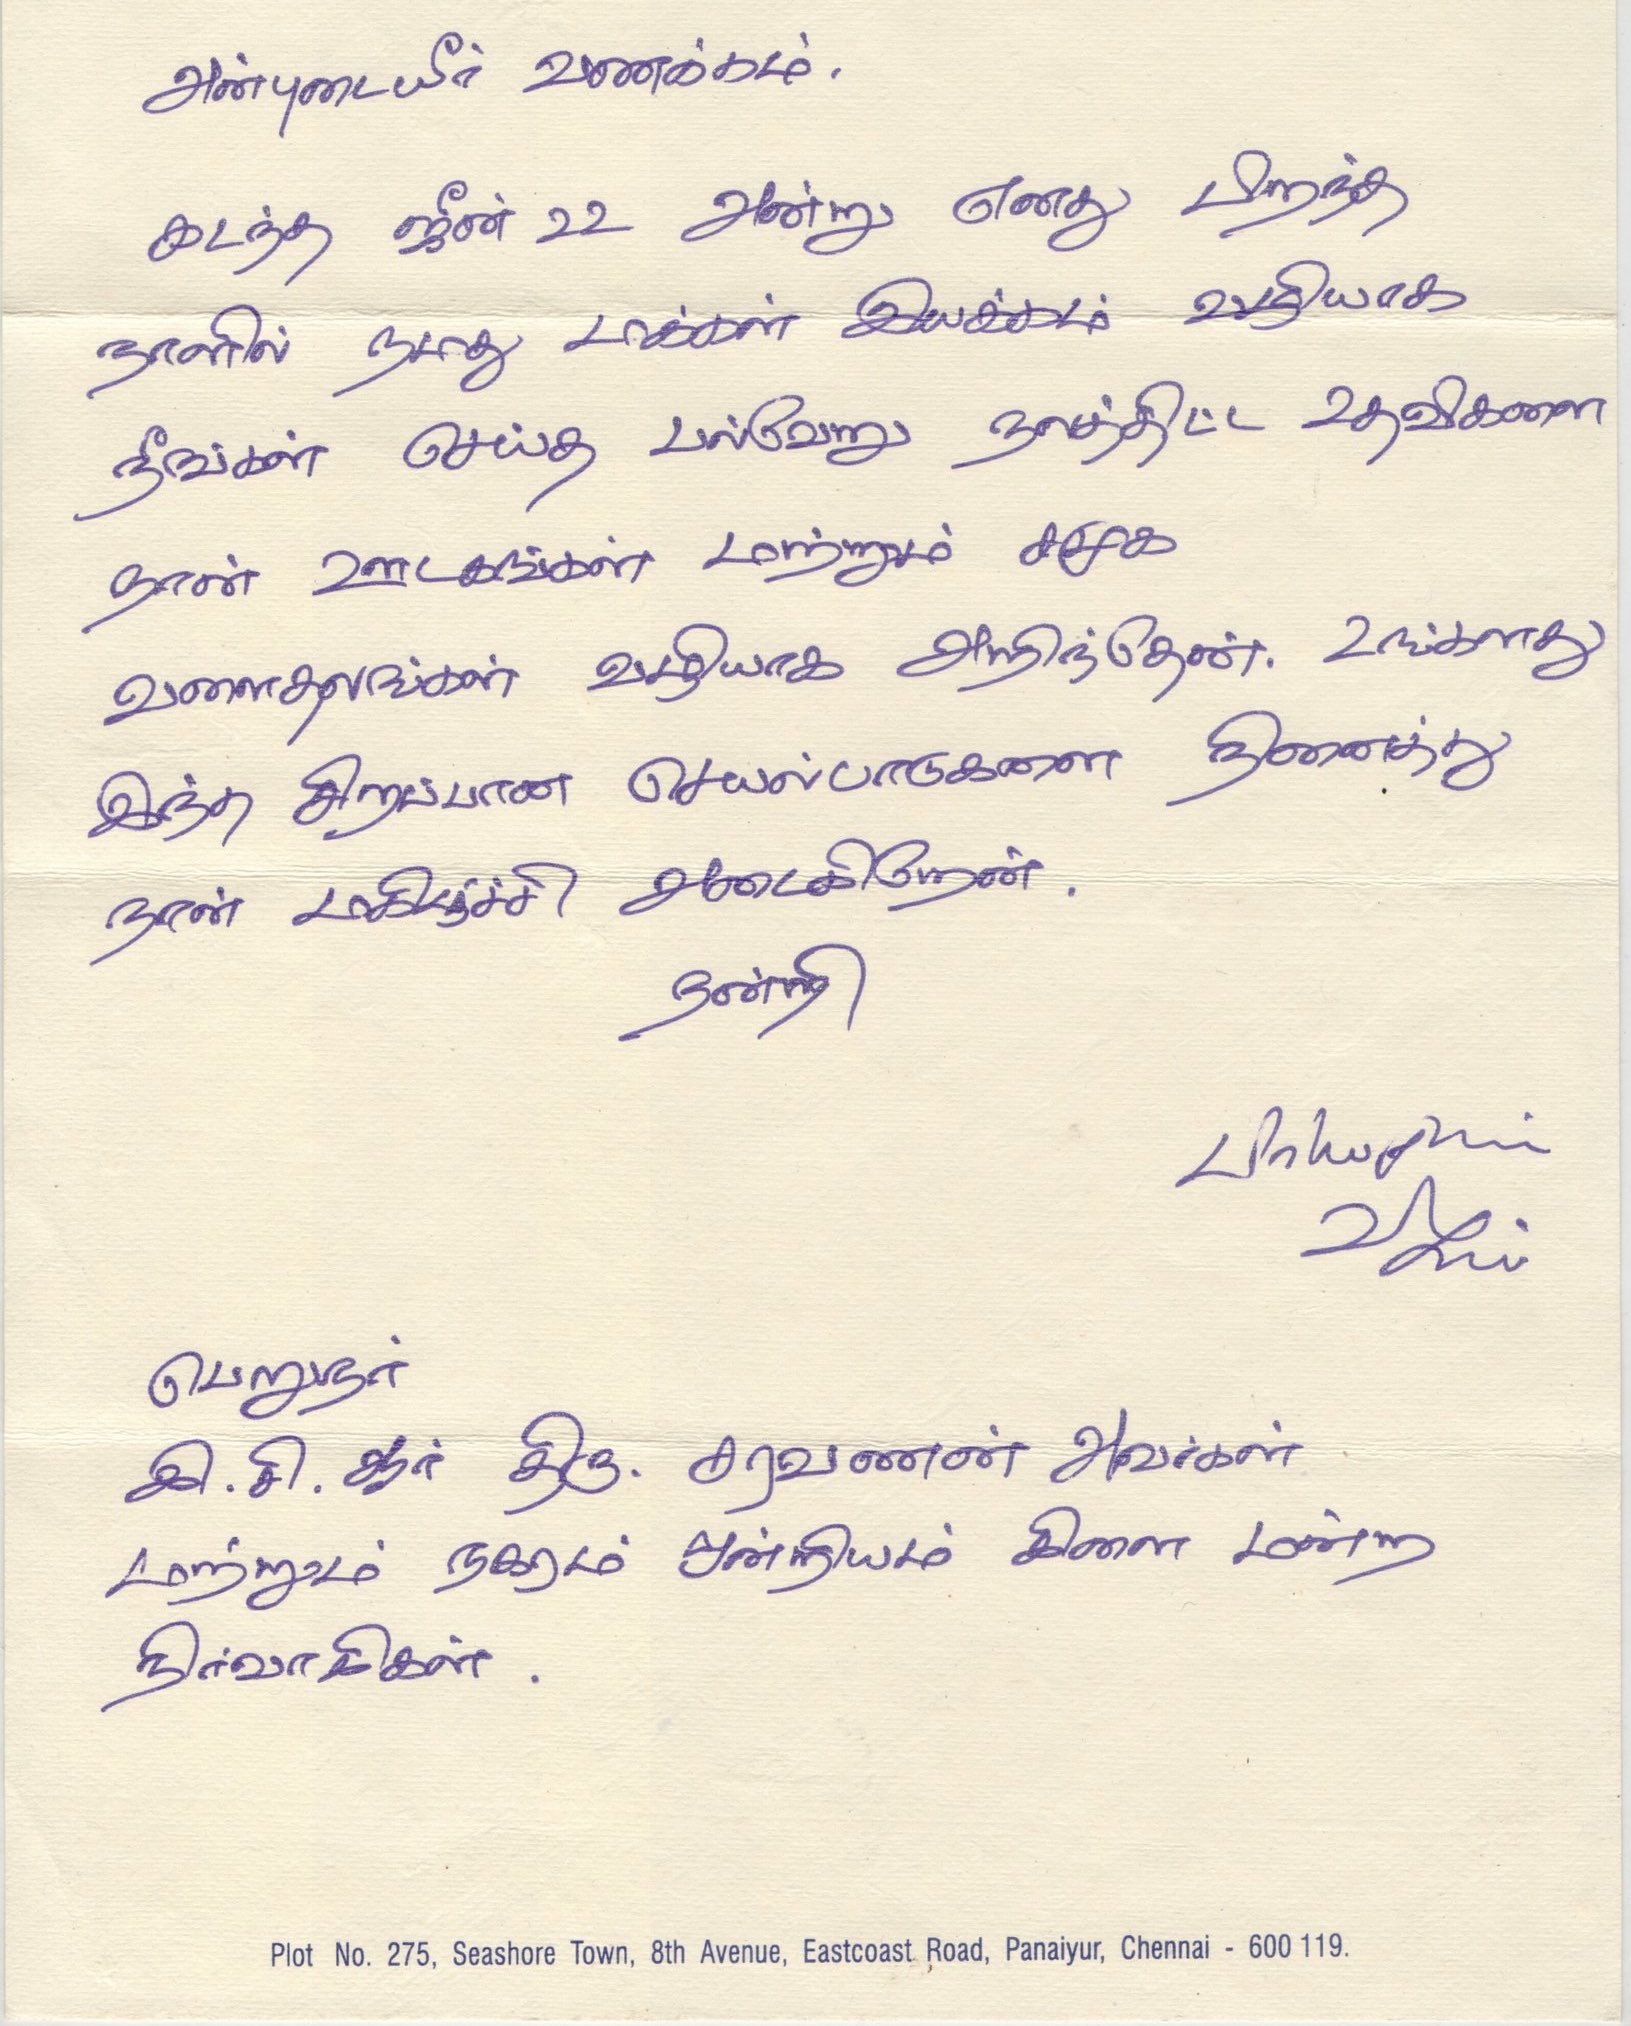 அன்புடையீர் வணக்கம்.
கடந்த ஜீன் 22 அன்று எனது பிறந்த
நாளில் நமது மக்கள் இயக்கம் வழியாக
நீங்கள் செய்த பல்வேறு நலத்திட்ட உதவிகளை
நான் ஊடகங்கள் மற்றும் சமூக
வளைதளங்கள் வழியாக அறிந்தேன். உங்களது
இந்த சிறப்பான செயல்பாடுகளை நினைத்து
நான் மகிழ்ச்சி அடைகிறேன்.
நன்றி
பிரியமுடன்
விஜய்
பெறுநர்
இ.சி.ஆர் திரு. சரவணன் அவர்கள்
மற்றும் நகரம் ஒன்றியம் கிளை மன்ற
நிர்வாகிகள்.
Plot No. 275, Seashore Town, 8th Avenue, Eastcoast Road, Panaiyur, Chennai - 600 119.